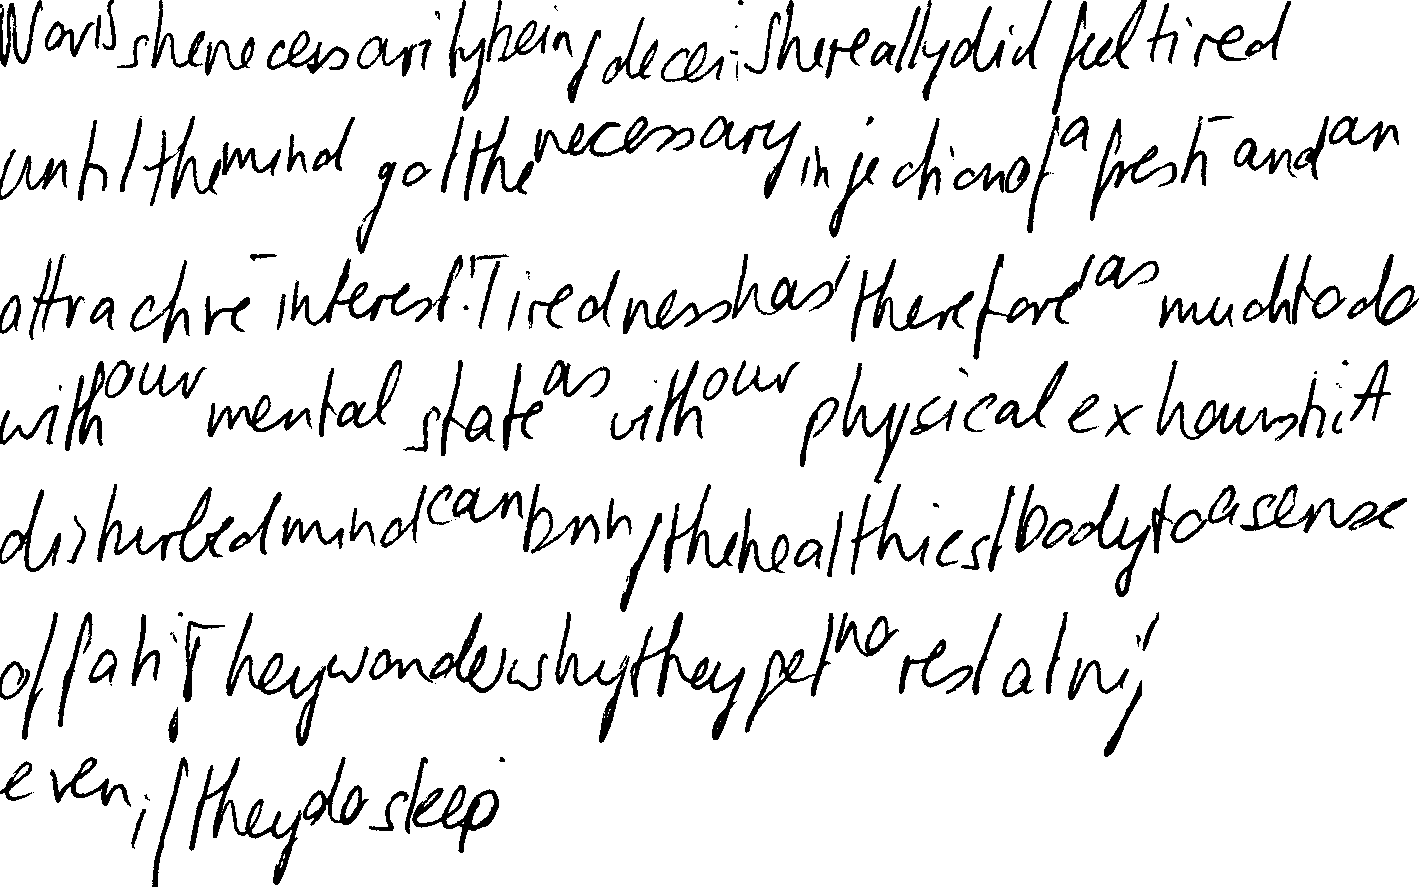 Nor is she necessarily being decei. She really did feel tired
until the mind got the necessary injection of a fresh and an
attractive interest. Tiredness has therefore as much to do
with our mental state as with our physical exhausti. A
disturbed mind can bring the healthiest body to a sense
of fati. They wonder why they get no rest at nig
even if they do sleep